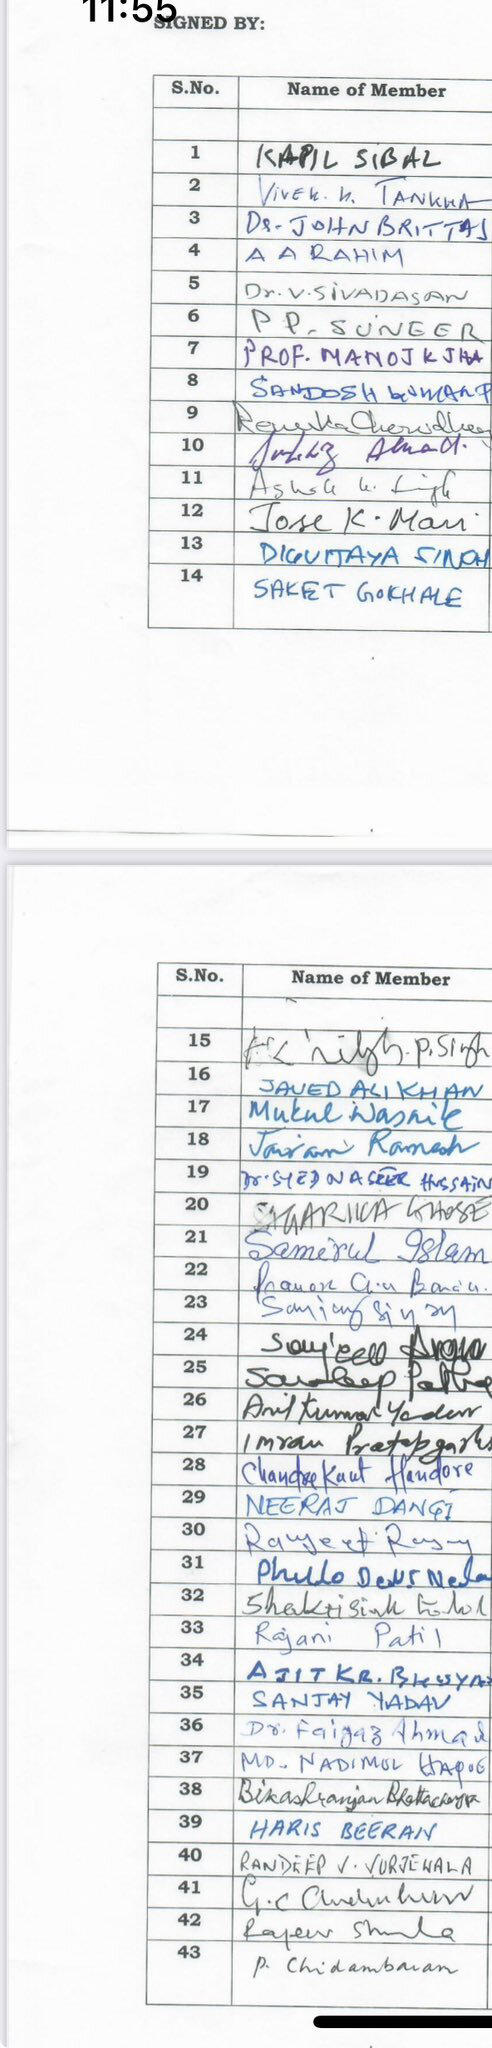 11:55
SIGNED BY:
S.No. Name of Member
1 KAPIL SIBAL
2 VIVEK. K. TANKHA
3 Dr. JOHN BRITTAS
4 A A RAHIM
5 Dr. V. SIVADASAN
6 P P. SUNEER
7 PROF. MANOJ K JHA
8 SANDOSH KUMAR P
9 Renuka Chowdhury
10 Ahmad.
11 Ashok K. Singh
12 Jose K. Mani
13 DIGVIJAYA SINGH
14 SAKET GOKHALE
S.No. Name of Member
15 P. Singh
16 JAVED ALI KHAN
17 Mukul Wasnik
18 Jairam Ramesh
19 Dr. SYED NASEER HUSSAIN
20 SAGARIKA GHOSE
21 Samirul Islam
22
23 Sanjay Singh
24 Sanjeev Arora
25 Sandeep Patha
26 Anil Kumar Yadav
27 Imran Pratapgarhi
28 Chandrakant Handore
29 NEERAJ DANGI
30 Ranjeet
31 Phulo Devi Neta
32 Shaktisinh Gohil
33 Rajani Patil
34 AJIT KR. BHUYAN
35 SANJAY YADAV
36 Dr. Faiyaz Ahmad
37 MD. NADIMUL HAQUE
38 Bikashranjan Bhattacharya
39 HARIS BEERAN
40 RANDEEP S. SURJEWALA
41 G.C
42 Rajeev Shukla
43 P. Chidambaram